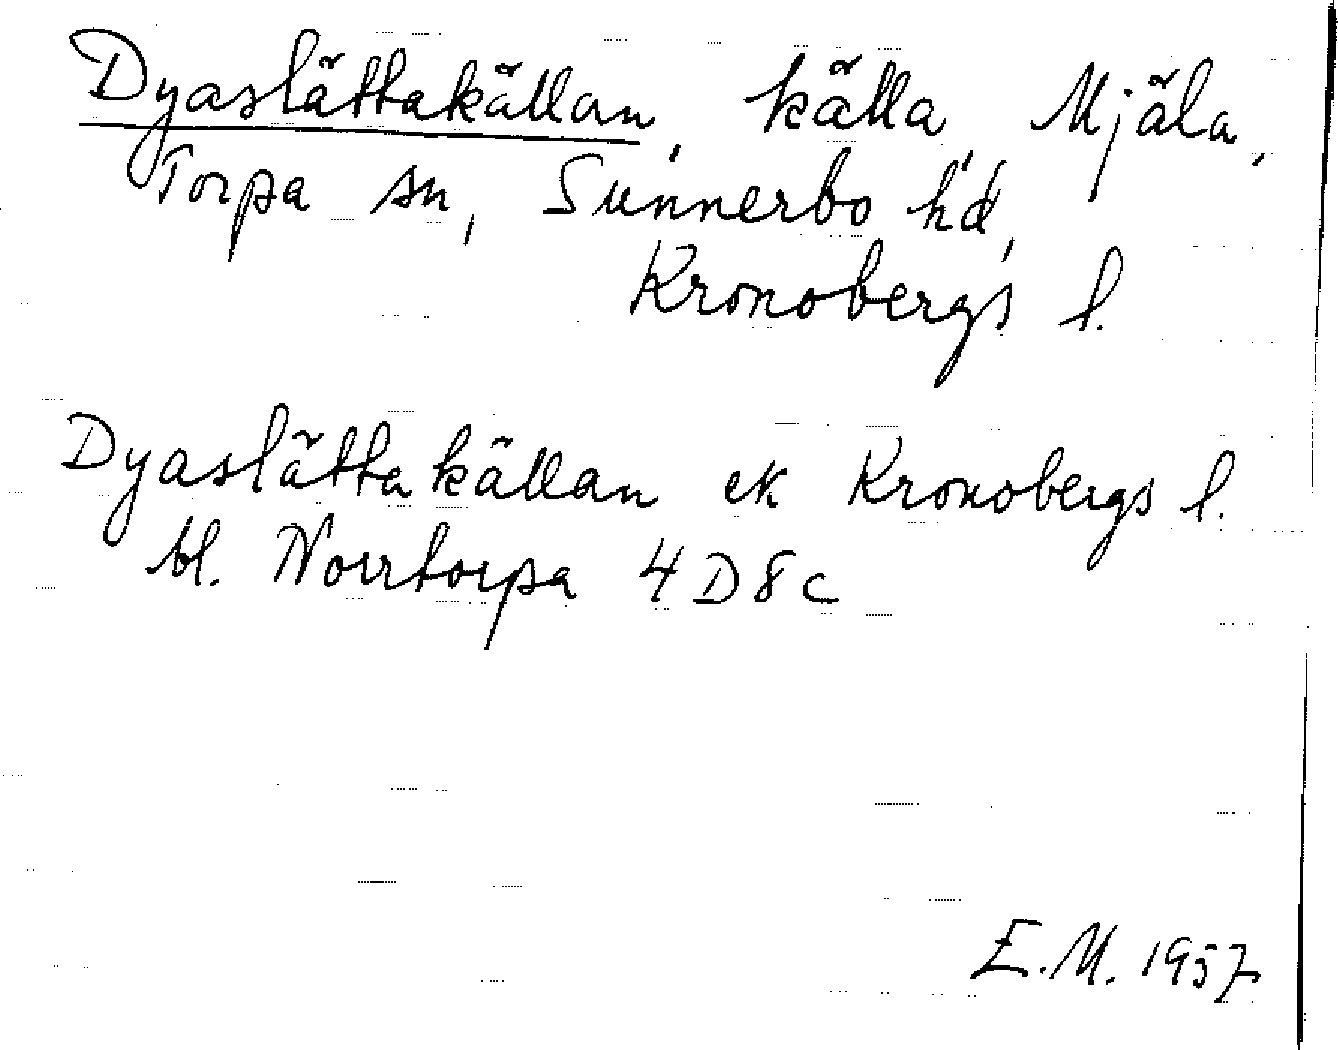 Dyaslättakällan, källa, Mjäla,
Torpa sn, Sunnerbo hd,
Kronobergs l.
Dyaslättakällan ek Kronobergs l.
bl. Norrtorpa 4D8c
E.M. 1957